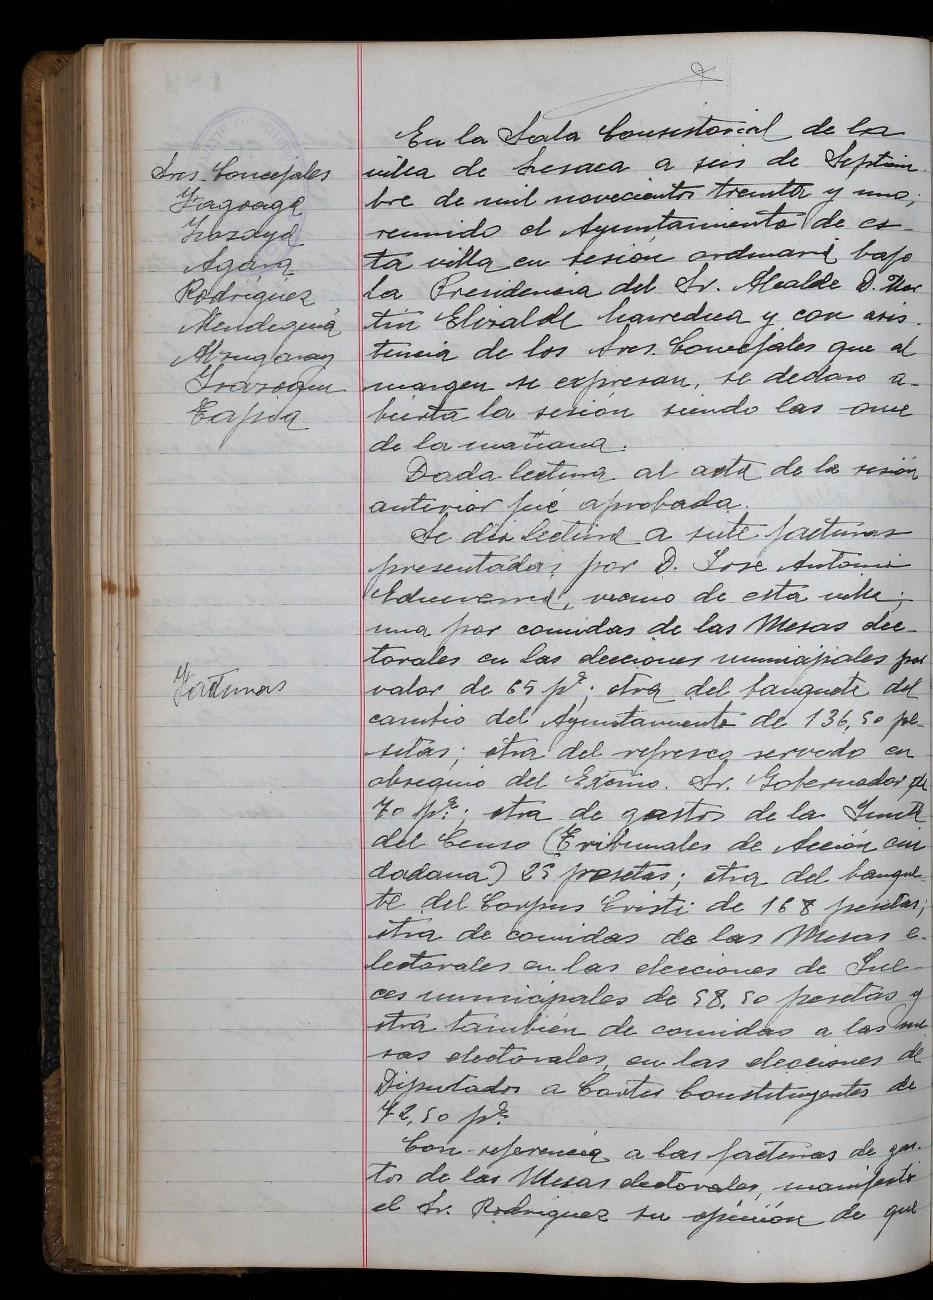 En la Sala Consistorial de la
villa de Lesaca a seis de Septiem-
bre de mil novecientos treinta y uno,
reunido el Ayuntamiento de es-
ta villa en sesión ordinaria bajo
la Presidencia del Sr. Alcalde D. Mar
tin Elizalde y con asis-
tencia de los Sres. Concejales que al
margen se expresan, se declaro a-
bierta la sesión siendo las once
de la mañana.
Sres. Concejales
Fagoaga
Irazoqui
Agara
Rodriguez
Mendeguia
Alzugaray
Irazoqui
Tapia
Dada lectura al acta de la sesión
anterior fué aprobada.
Se dio lectura a siete facturas
presentadas por D. José Antonio
vecino de esta villa;
una por comidas de las Mesas elec-
torales en las elecciones municipales por
valor de 65 pts; otra del banquete del
cambio del Ayuntamiento de 136,50 pe-
setas; otra del refresco servido en
obsequio del Excmo. Sr. Gobernador de
70 pts; otra de gastos de la Junta
del Censo (Tribunales de Acción ciu
dadana) 25 pesetas; otra del banque-
te del Corpus Cristi de 168 pesetas;
otra de comidas de las Mesas e-
lectorales en las elecciones de Jue-
ces municipales de 58,50 pesetas y
otra también de comidas a las me
sas electorales, en las elecciones de
Diputados a Cortes Constituyentes de
72,50 pts.
Facturas
Con referencia a las facturas de gas-
tos de las Mesas electorales, manifesto
el Sr. Rodriguez su opinión de que